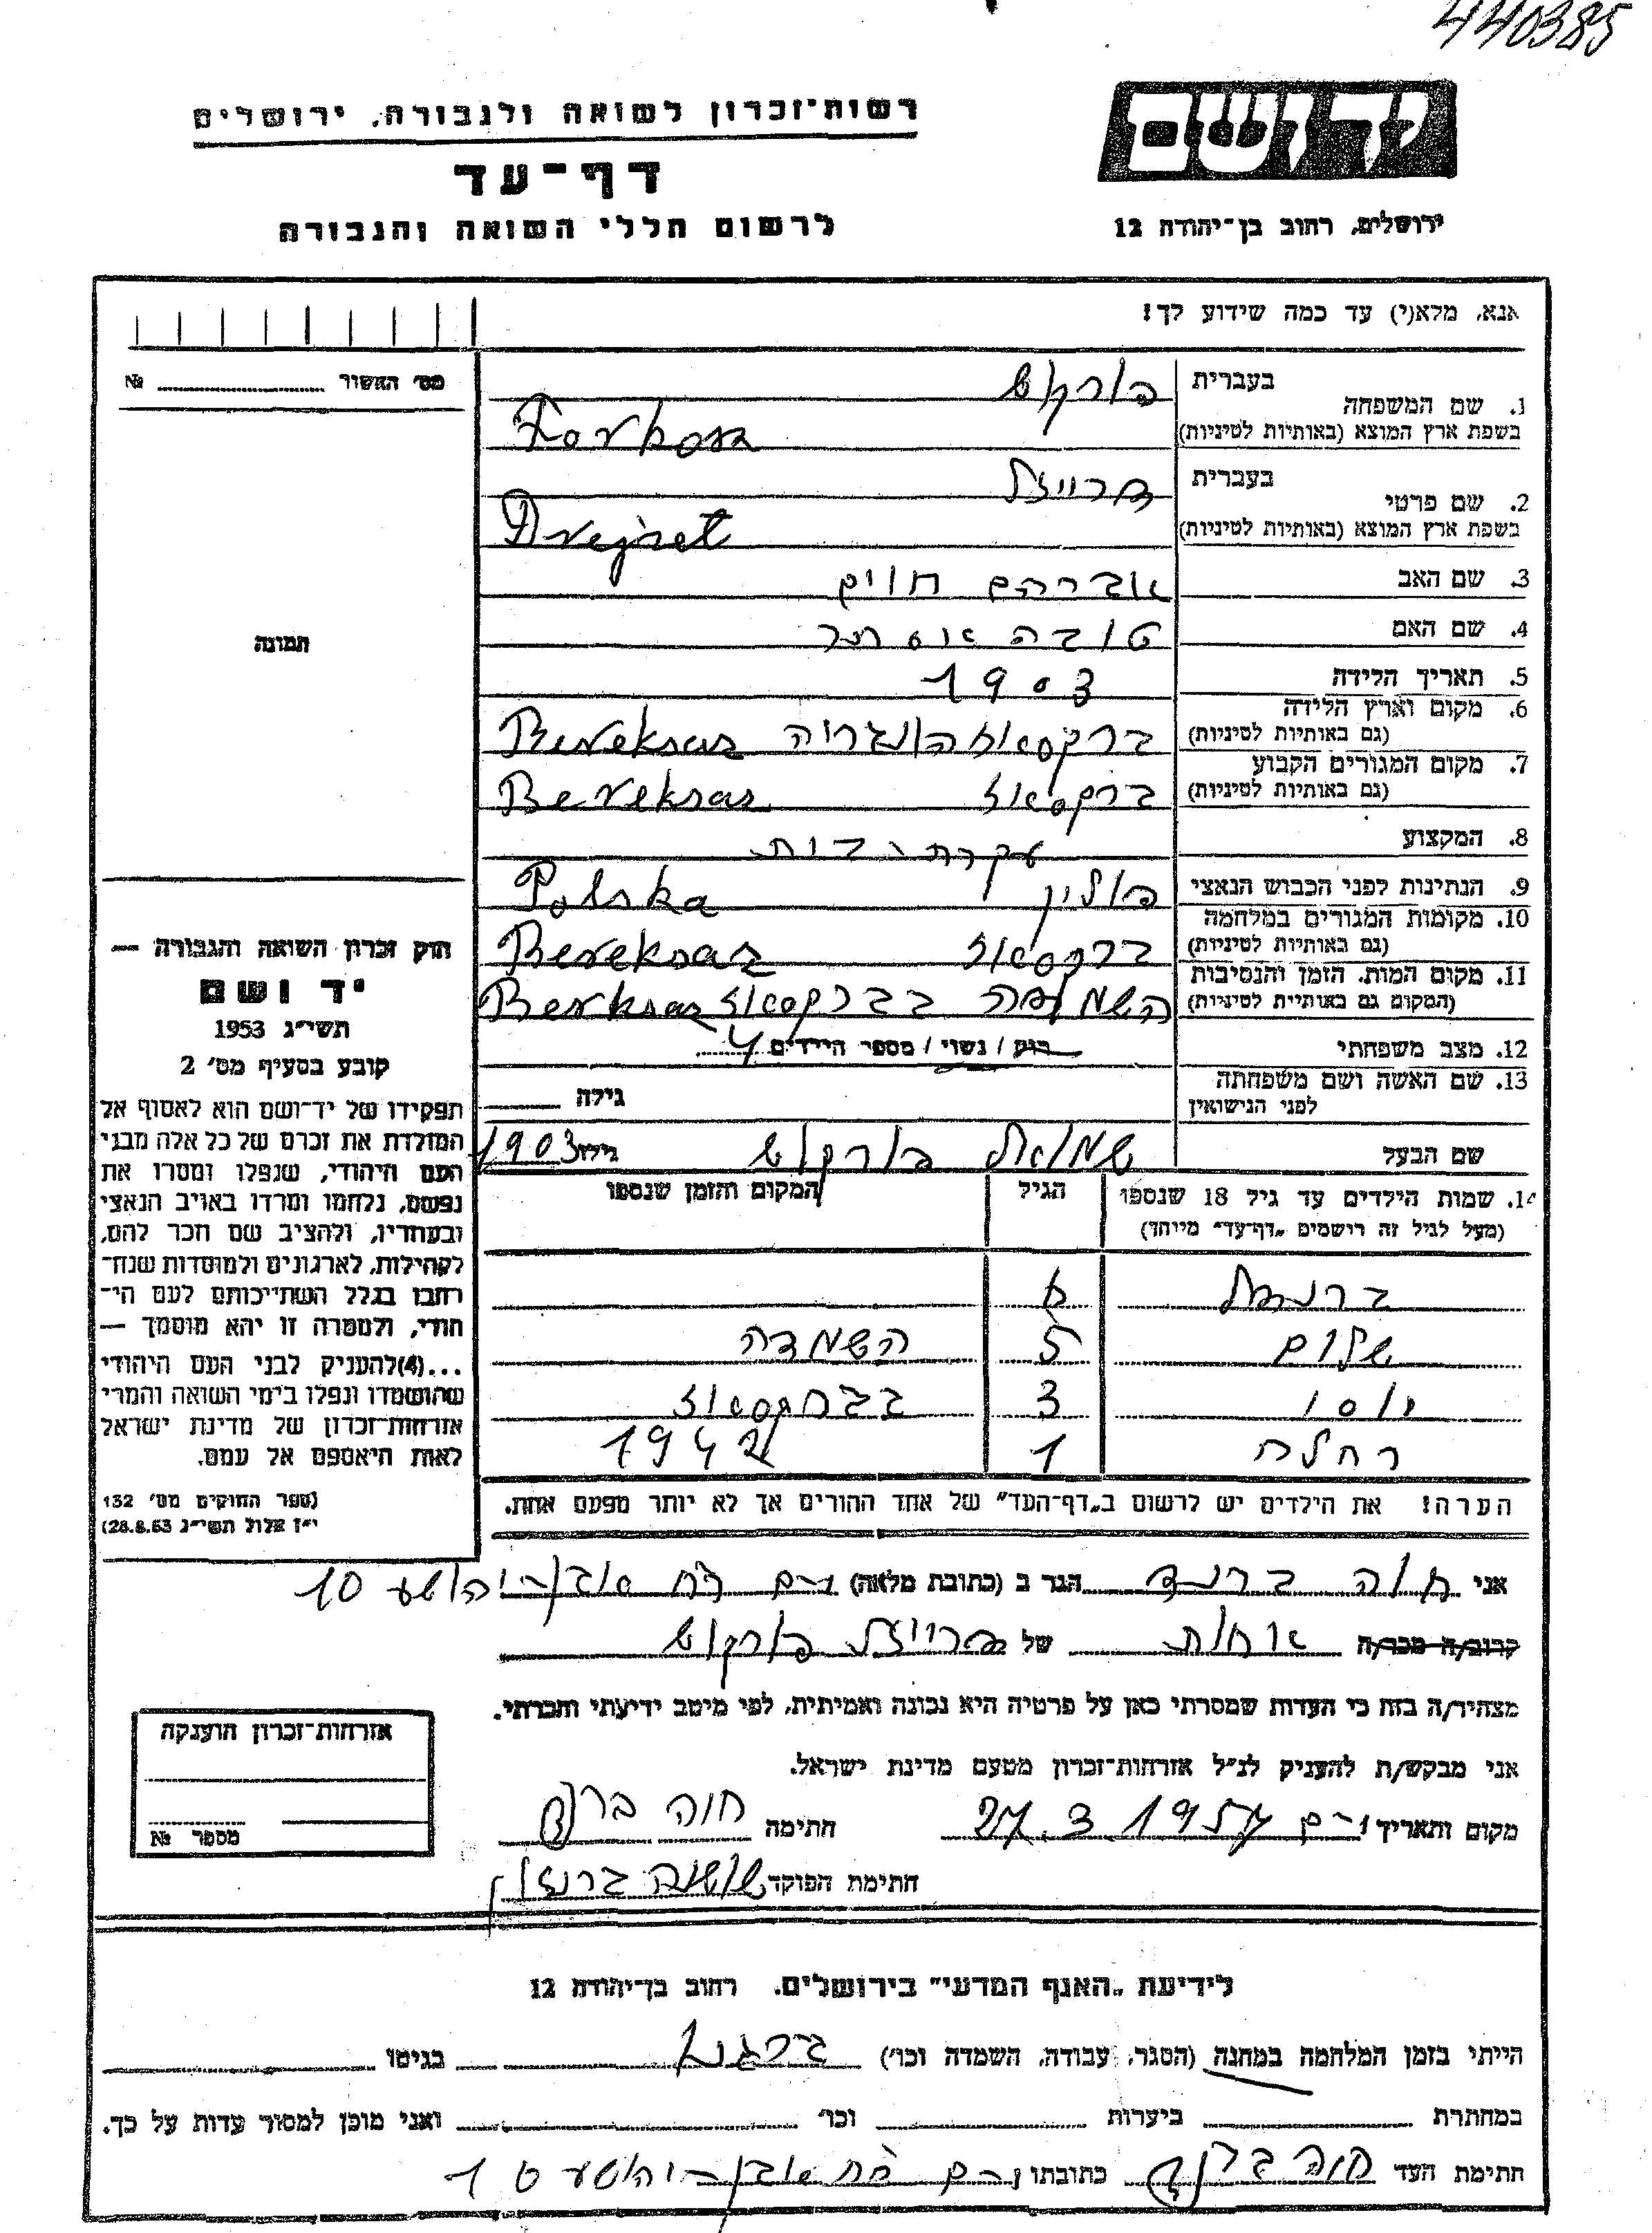 440385
יד ושם
ירושלים, רחוב בן־יהודה 12
רשות־זכרון לשואה ולגבורה, ירושלים
דף־עד
לרשום חללי השואה והגבורה
אנא, מלא(י) עד כמה שידוע לך!
מס׳ האשור № 
תמונה
1. שם המשפחה בעברית פורקוש
בשפת ארץ המוצא (באותיות לטיניות)
2. שם פרטי בעברית דרייזל
בשפת ארץ המוצא (באותיות לטיניות)
3. שם האב אברהם חיים
4. שם האם טובה אסתר
5. תאריך הלידה 1903
6. מקום וארץ הלידה ברקסאז הונגריה Bereksas
(גם באותיות לטיניות)
7. מקום המגורים הקבוע ברקסאז Bereksas
(גם באותיות לטיניות)
8. המקצוע עקרת־בית
9. הנתינות לפני הכבוש הנאצי פולין Polska
10. מקומות המגורים במלחמה ברקסאז Bereksas
(גם באותיות לטיניות)
11. מקום המות, הזמן והנסיבות השמדה בברקסאז Berksas
(המקום גם באותיות לטיניות)
12. מצב משפחתי רוק / נשוי / מספר הילדים 4
13. שם האשה ושם משפחתה
לפני הנישואין גילה
שם הבעל שמואל פורקוש גילו 1903
14. שמות הילדים עד גיל 18 שנספו הגיל המקום והזמן שנספו
(מעל לגיל זה רושמים „דף־עד” מייוחד)
6
שלום 5 השמדה
יוסי 3 בברקסאז
רחלה 1 1942
הערה! את הילדים יש לרשום ב„דף־העד” של אחד ההורים אך לא יותר מפעם אחת.
חוק זכרון השואה והגבורה —
יד ושם
תשי״ג 1953
קובע בסעיף מס׳ 2
תפקידו של יד־ושם הוא לאסוף אל
המולדת את זכרם של כל אלה מבני
העם היהודי, שנפלו ומסרו את
נפשם, נלחמו ומרדו באויב הנאצי
ובעוזריו, ולהציב שם וזכר להם,
לקהילות, לארגונים ולמוסדות שנח־
רבו בגלל השתייכותם לעם הי־
הודי, ולמטרה זו יהא מוסמך —
...(4) להעניק לבני העם היהודי
שהושמדו ונפלו בימי השואה והמרי
אזרחות־זכרון של מדינת ישראל
לאות היאספם אל עמם.
(ספר החוקים מס׳ 132
י״ז אלול תשי״ג 28.8.53)
אני חוה ברנד הגר ב (כתובת מלאה) י־ם רח אבן־יהושע 10
קרוב/ה מכר/ה אחות של דרייזל פורקוש
מצהיר/ה בזה כי העדות שמסרתי כאן על פרטיה היא נכונה ואמיתית, לפי מיטב ידיעתי והכרתי.
אני מבקש/ת להעניק לנ״ל אזרחות־זכרון מטעם מדינת ישראל.
מקום ותאריך י־ם 27.3 1957 חתימה חוה ברנד
חתימת הפוקד שושנה
אזרחות־זכרון הוענקה
מספר №
לידיעת „האגף המדעי” בירושלים, רחוב בן־יהודה 12
הייתי בזמן המלחמה במחנה (הסגר, עבודה, השמדה וכו׳) בגיטו
במחתרת ביערות וכו׳ ואני מוכן למסור עדות על כך.
חתימת העד חוה ברנד כתובתו י־ם רח אבן־יהושע 10